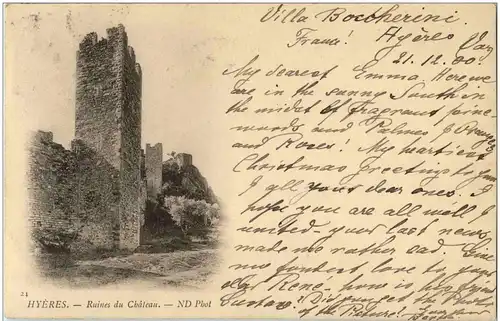 Villa Boccherini.
France! Hyères Var
21.12.00.
My dearest Emma. Here we
are in the sunny South in
the midst of fragrant pine-
woods and Palmes & Orange
and Roses! My heartiest
Christmas greetings to you
& all your dear ones. I
hope you are all well &
united. Your last news
made me rather sad. Give
my fondest love to your
dear René. how is
Gustave? Did you get the Photo
of the Picture?
21
HYÈRES. — Ruines du Château. — ND Phot